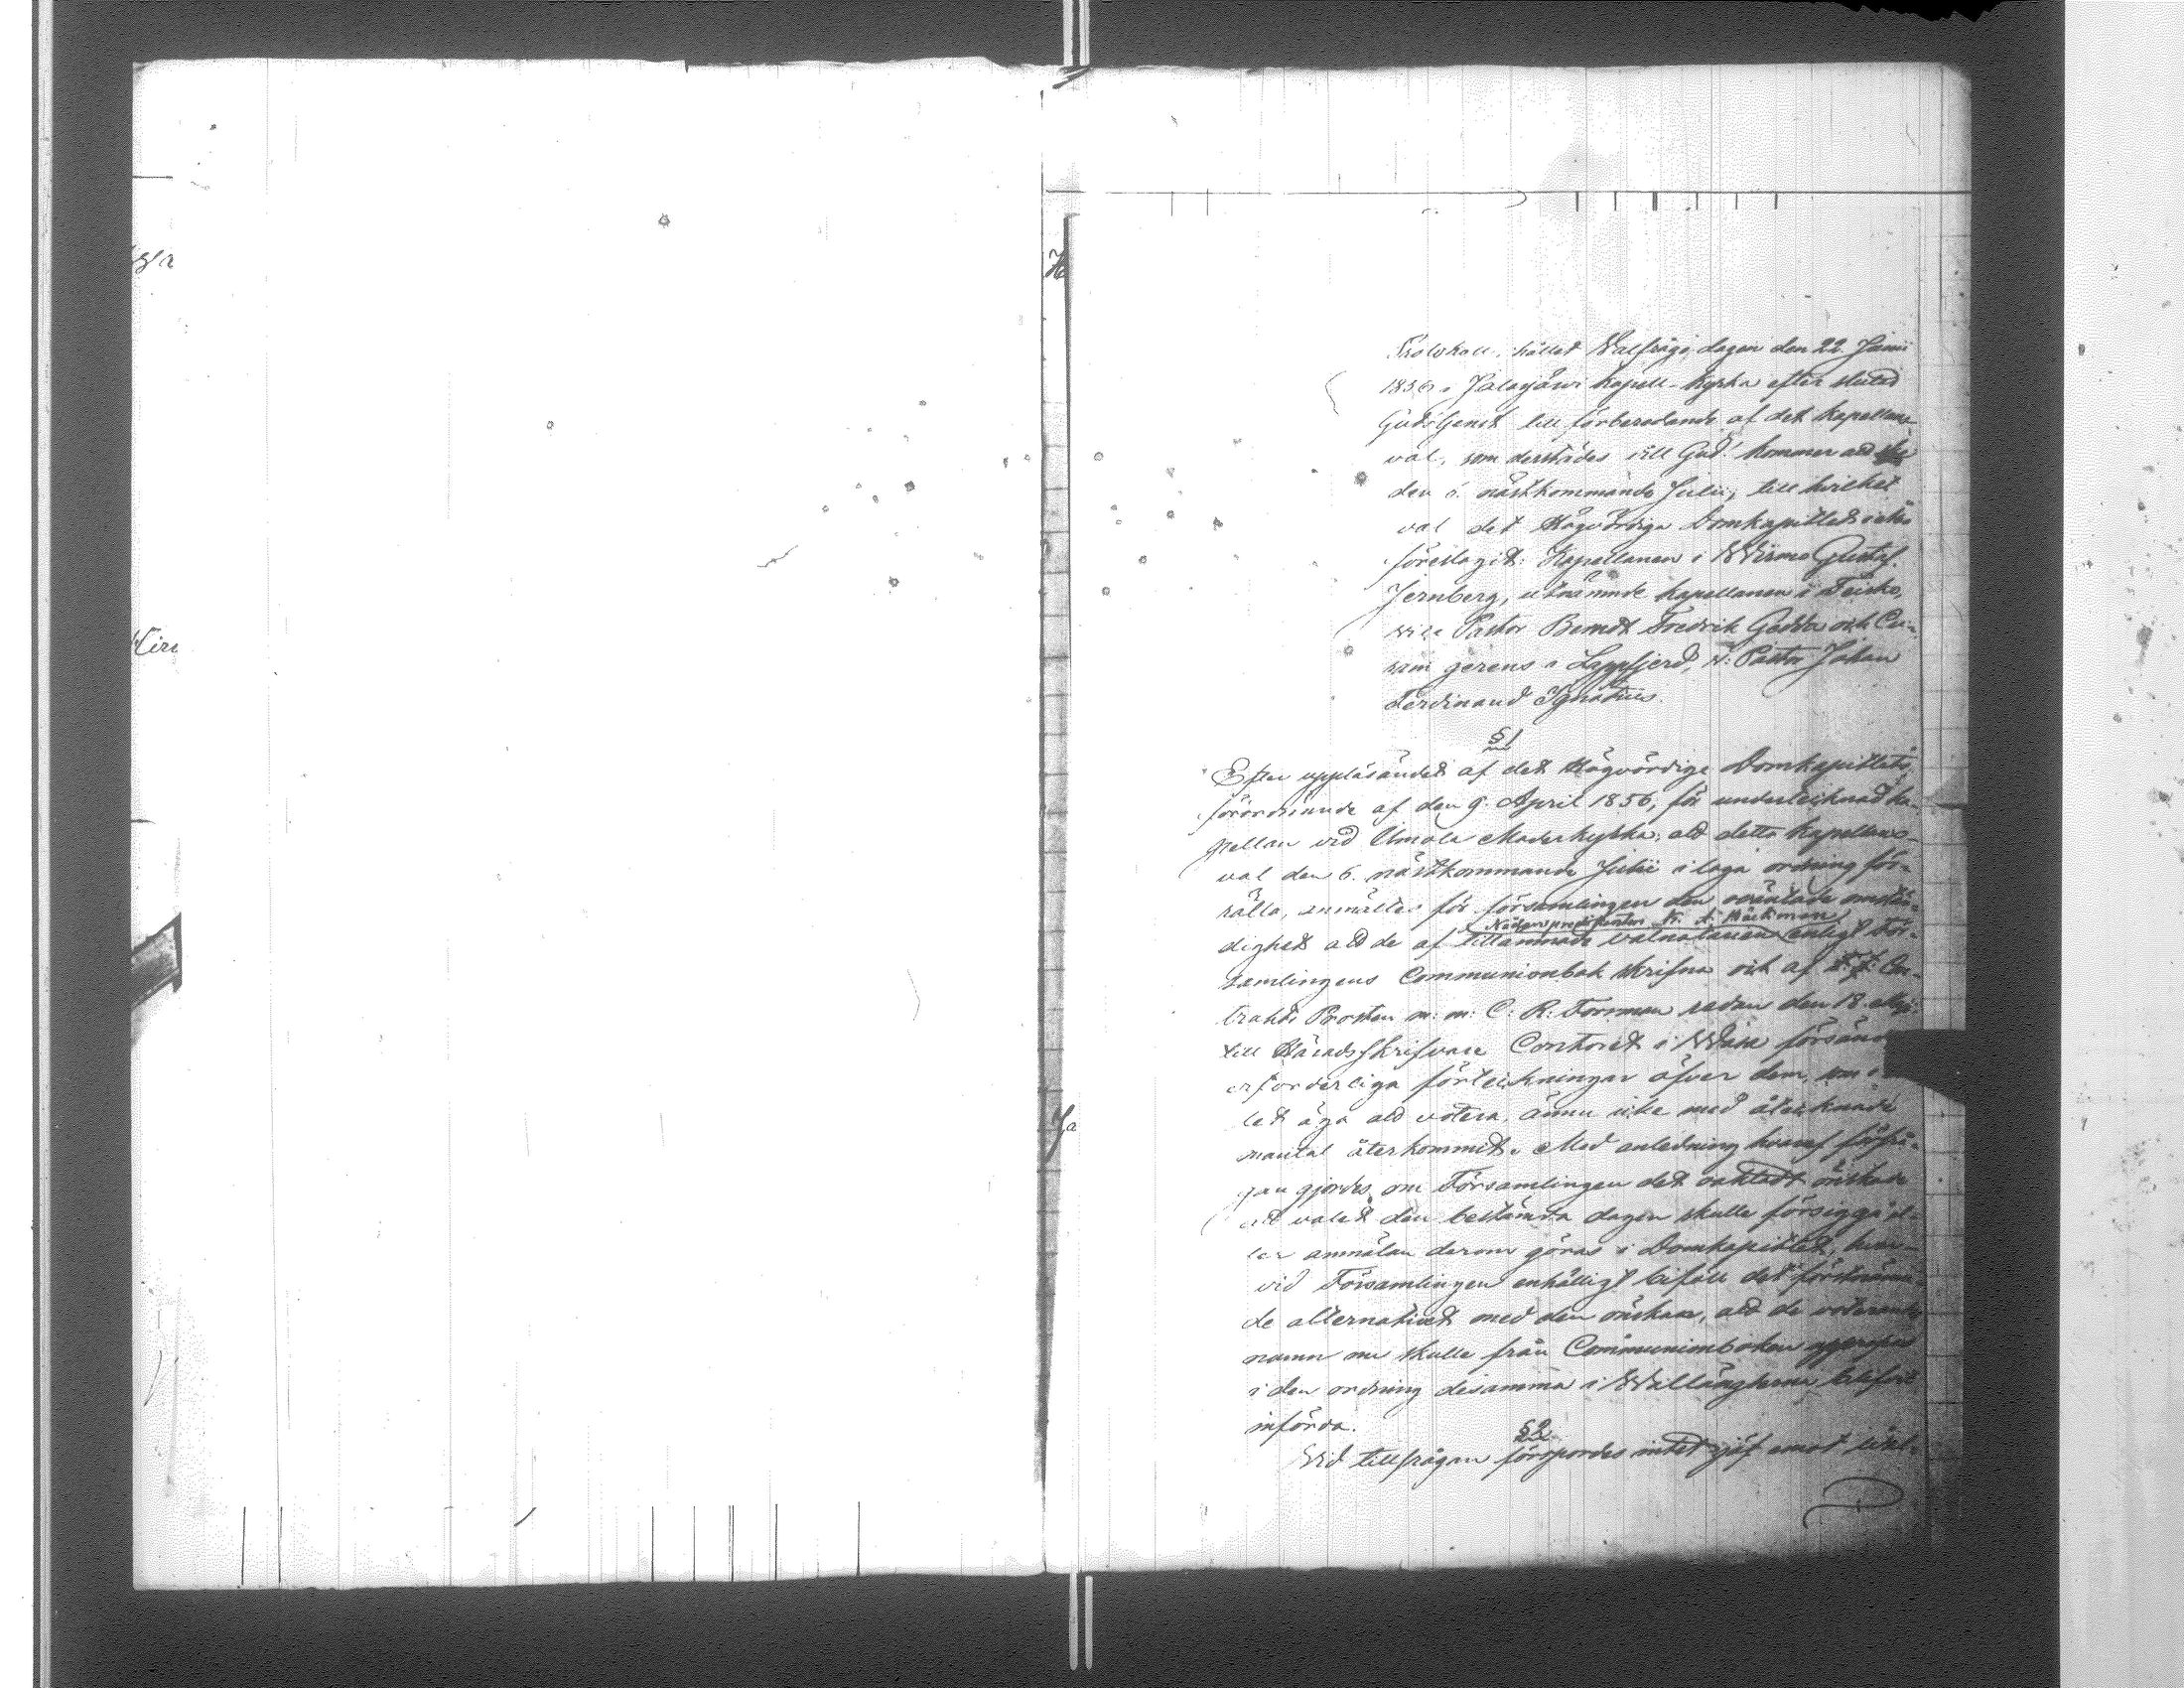 Protokoll, hållet Valfråge dagen den 22 Junii
1856 i Jalasjärvi Kapell-kyrka efter slutad
Gudstjenst till förberedande af det Kapellans-
val, som derstädes vill Gud! kommer att ske
den 6. nästkommande Julii, till hvilket
val det Högvördiga Domkapitlet i Åbo
föreslagit: Kapellanen i Wirmo Gustaf
Jernberg, utnämnde kapellanen i Teisko,
vice Pastor Berndt Fredrik Gadda och Cu-
ram gerens i Lappfjerd, V: Pastor Johan
Ferdinand Ignatius.
§ 1
Efter uppläsandet af det Högvördiga Domkapitlets
förordnande af den 9. April 1856, för undertecknad ka-
pellan vid Ilmola Moderkyrka, att detta kapellans-
val den 6. nästkommande Julii i laga ordning för-
rätta, anmältes för församlingen den oväntade omstän-
Nådårspredikanten K. A. Häckman
dighet att de af tillämnade valnotarien enligt För-
samlingens Communionbok skrifna och af T. f. Con-
trakts Prosten m: m: C: R: Forsman redan den 18. Maji
till Häradsskrifvare Contoret i Wasa försända
erforderliga förteckningar öfver dem, som i
let äga att votera, ännu icke med åtecknade
mantal återkommit. Med anledning hvaraf förfrå-
gan gjordes, om Församlingen det oaktadt önskade
att valet den bestämda dagen skulle försiggå el-
ler anmälan derom göras i Domkapitlet, hvar-
vid Församlingen enhälligt biföll det förstnämn-
de alternativet med den önskan, att de voterandes
namn nu skulle från Communionboken uppropas
i den ordning desamma i Wallängderna blifvit
införda.
§ 2
Vid tillfrågan försports intet jäf emot